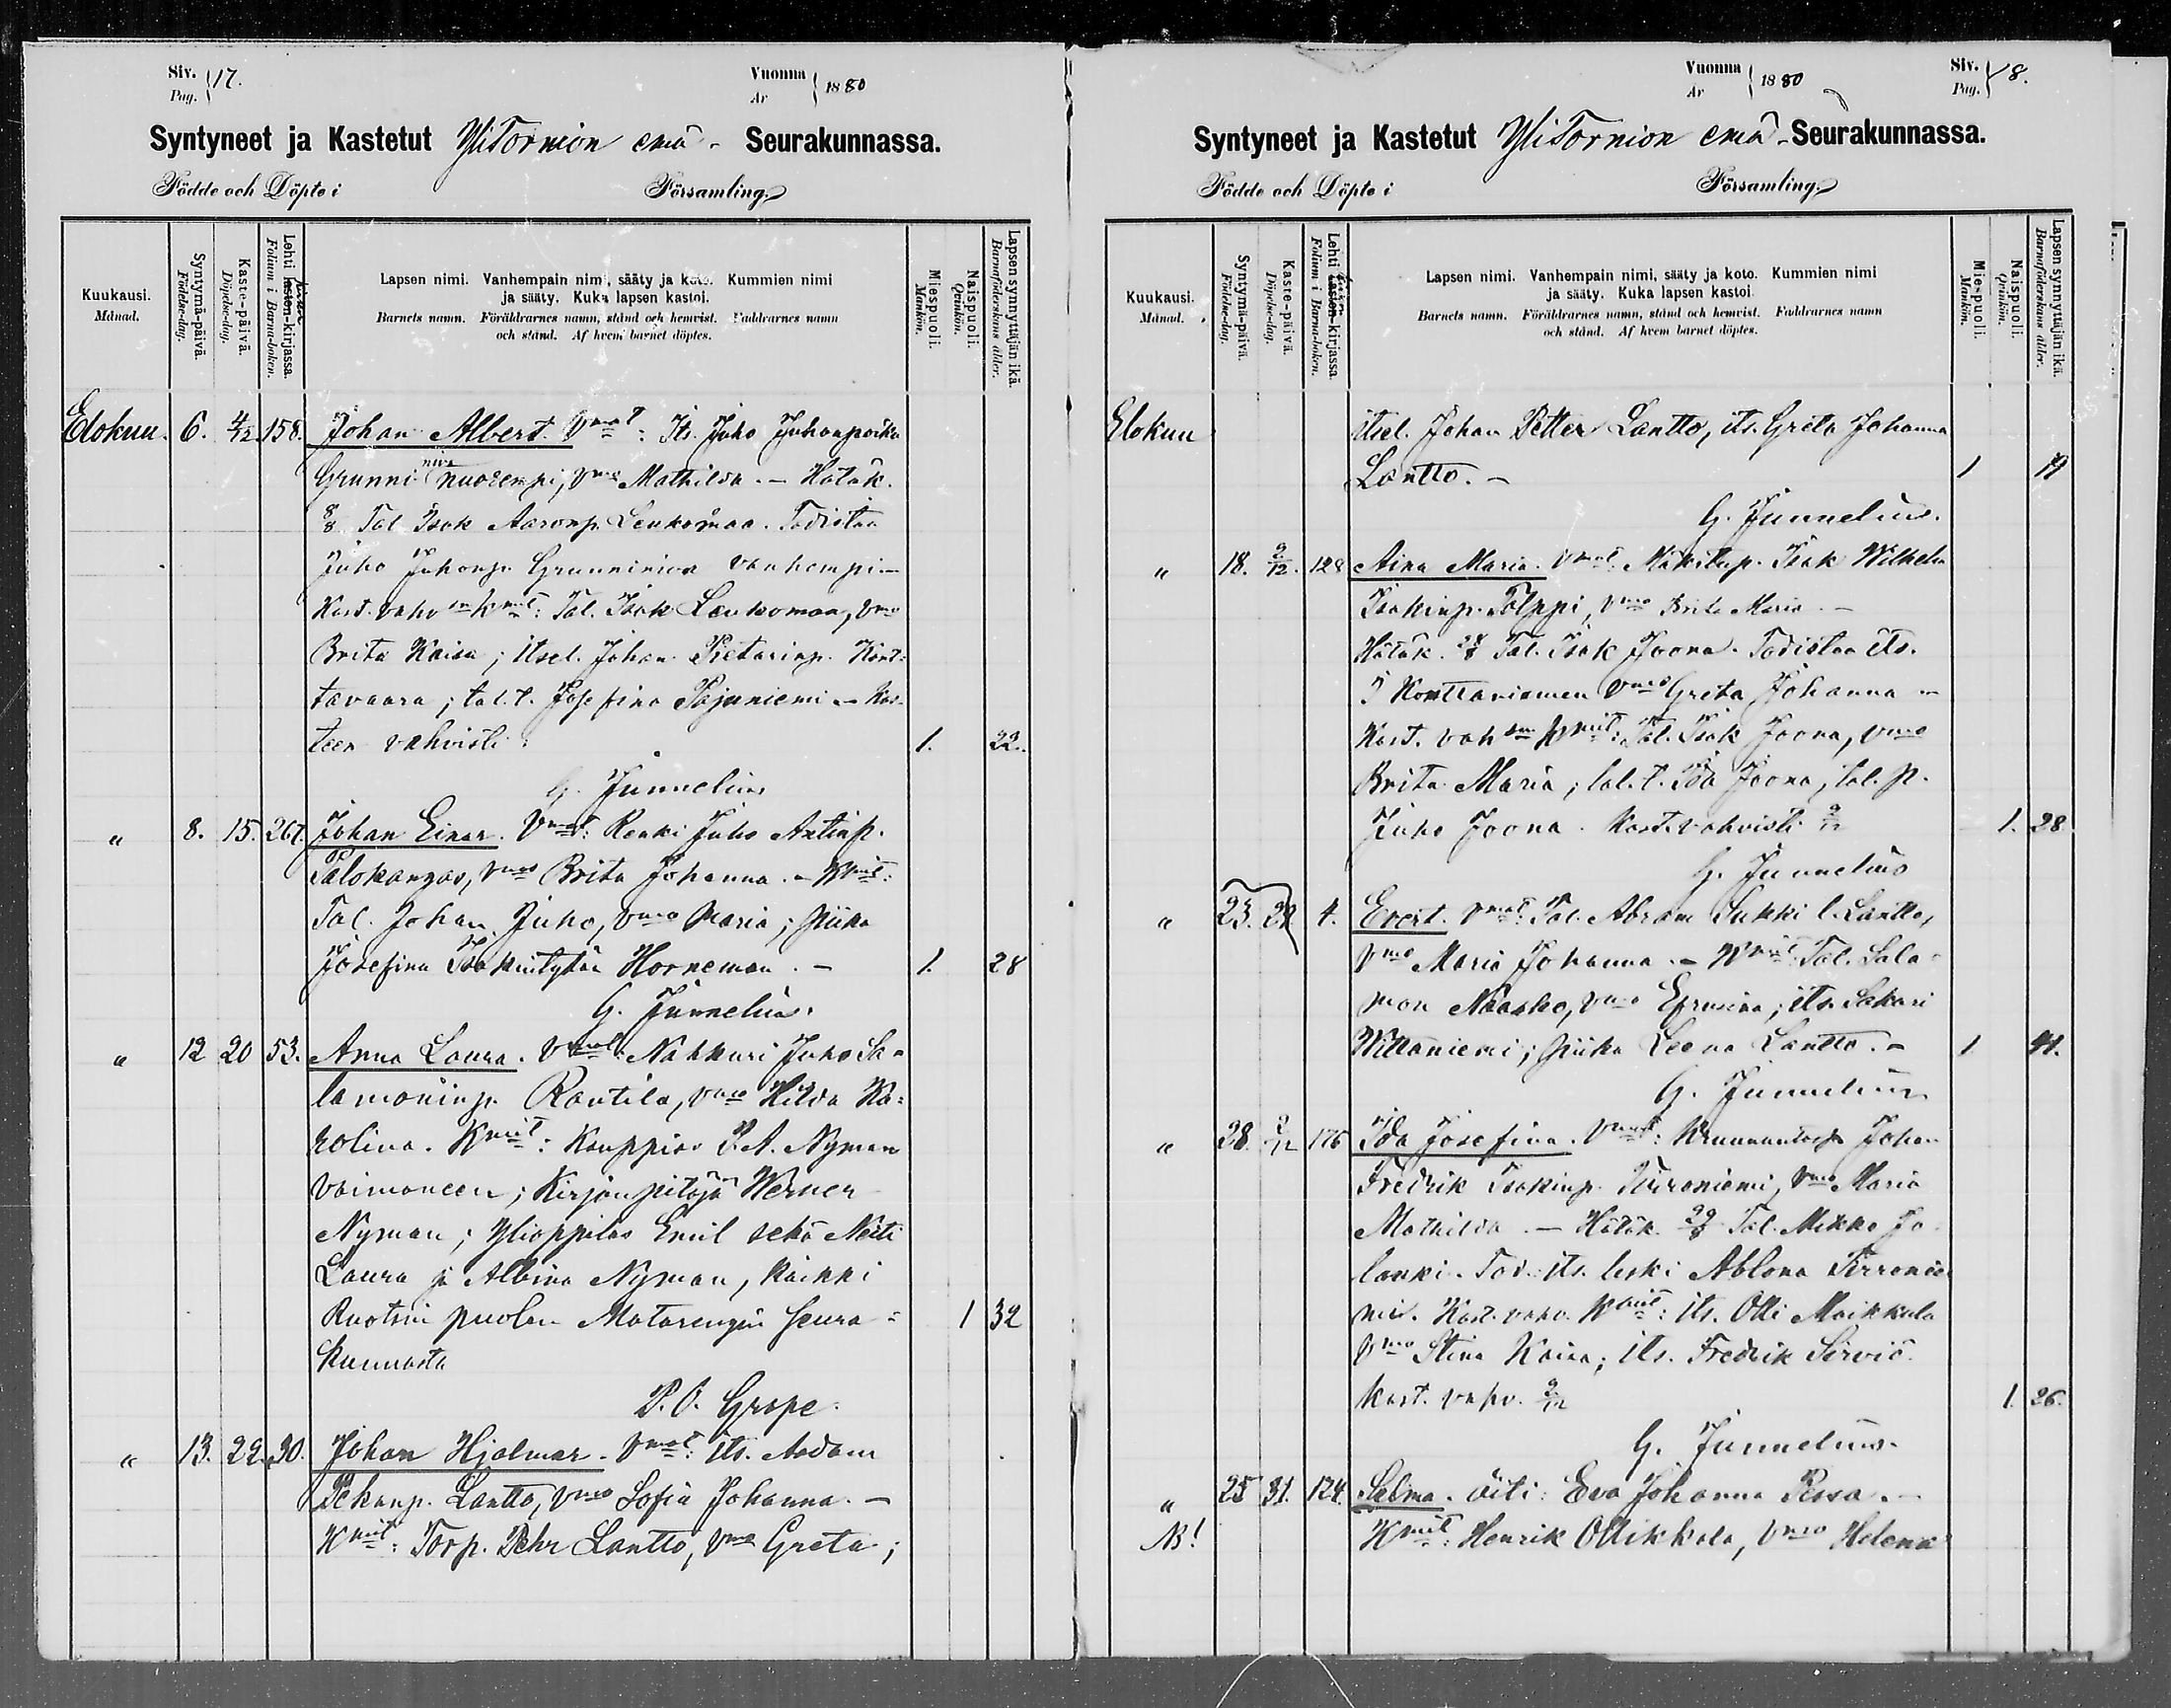 Siv. Pag. 17.
Vuonna År 1880
Syntyneet ja Kastetut YliTornion emä- Seurakunnassa.
Födde och Döpte i Församling.
Kuukausi. Månad.
Syntymä-päivä. Födelse-dag.
Kaste-päivä. Döpelse-dag.
Lehti lasten-kirjassa. Folium i Barna-boken.
Lapsen nimi. Vanhempain nimi, sääty ja koto. Kummien nimi
ja sääty. Kuka lapsen kastoi.
Barnets namn. Föräldrarnes namn, stånd och hemvist. Faddrarnes namn
och stånd. Af hvem barnet döptes.
Miespuoli. Mankön.
Naispuoli. Qvinkön.
Lapsen synnyttäjän ikä. Barnaföderskans ålder.
Elokuu. 6. 158. Johan Albert. Vmat: Its. Juho Juhonpoika
Grunni niva nuorempi, Vmo Mathilda. - Hätäk.
8/8 Tal Isak Aaronp. Leukomaa. Todistaa
Juho Juhonp. Grunniniva vanhempi -
Kast. vahv Kmit: Tal. Isak Leukoman, Vmo
Brita Kaisa; itsel. Johan Pietarinp. Kont-
tavaara; tal.t. Josefina Pajuniemi - Kas-
teen vahvisti: 1. 22.
G. Junnelius
" 8. 15. 267. Johan Einar. Vmat: Renki Juho Antinp.
Palokangas, Vmo Brita Johanna. - Kmit:
Tal. Johan Juho, Vmo Maria; piika
Josefina Isakintytär Horneman. - 1. 28
G. Junnelius.
" 12 20 53. Anna Laura. Vmat: Nahkuri Juho Sa-
lamoninp. Rautila, Vmo Hilda Ka-
rolina. Kmit: Kauppias P.A. Nyman
vaimoneen; Kirjanpitäjä Werner
Nyman; Ylioppilas Emil sekä Neiti
Laura ja Albina Nyman, kaikki
Ruotsin puolen Matarengin seura- 1 32
kunnasta
P.O. Grape.
" 13. 22. 30. Johan Hjalmar. Vmat: Its. Aadam
Pekanp. Lantto, Vmo Sofia Johanna. -
Kmit: Torp. Pehr Lantto, Vmo Greta;
Vuonna År 1880
Siv. Pag. 18.
Syntyneet ja Kastetut YliTornion emä- Seurakunnassa.
Födde och Döpte i Församling.
Kuukausi. Månad.
Syntymä-päivä. Födelse-dag.
Kaste-päivä. Döpelse-dag.
Lehti lasten-kirjassa. Folium i Barna-boken.
Lapsen nimi. Vanhempain nimi, sääty ja koto. Kummien nimi
ja sääty. Kuka lapsen kastoi.
Barnets namn. Föräldrarnes namn, stånd och hemvist. Faddrarnes namn
och stånd. Af hvem barnet döptes.
Miespuoli. Mankön.
Naispuoli. Qvinkön.
Lapsen synnyttäjän ikä. Barnaföderskans ålder.
Elokuu itsel. Johan Petter Lantto, its. Greta Johanna
Lantto. - 1
G. Junnelius.
" 18. 2/12. 128 Aina Maria. Vmat: Mäkitup. Isak Wilhelm
Isakinp. Tolppi, Vmo Brita Maria. -
Hätäk. Tal. Isak Joona. Todistaa its.
I Konttaniemen Vmo Greta Johanna -
Kast. vah Kmit: Tal. Isak Joona, Vmo
Brita Maria; tal.t. Ida Joona, tal.p.
Juho Joona. Kast. vahvisti 2/12 1. 28
G. Junnelius
" 23. 29 4. Evert. Vmat: Tal. Abram Sukki l. Lantto,
Vmo Maria Johanna. - Kmit: Tal. Sala-
mon Naasko, Vmo Efrosina; its. Sakari
Wittaniemi; piika Leena Lantto. - 1 41.
G. Junnelius
" 28. 2/12 176 Ida Josefina. Vmat: Johan
Fredrik Isakinp. Tirroniemi, Vmo Maria
Mathilda. - Hätäk. 29/8 Tal. Mikko Jo-
lanki. Tod. its. leski Ablona Tirronie-
mi. Kast. vahv. Kmit: its. Olli Maikkula
Vmo Stina Kaisa; its. Fredrik Serviö.
Kast. vahv. 2/12 1. 26.
G. Junnelius.
" 25 31. 124. Selma. äiti: Eva Johanna Pessa. -
NB! Kmit: Henrik Ollikkala, Vmo Helena